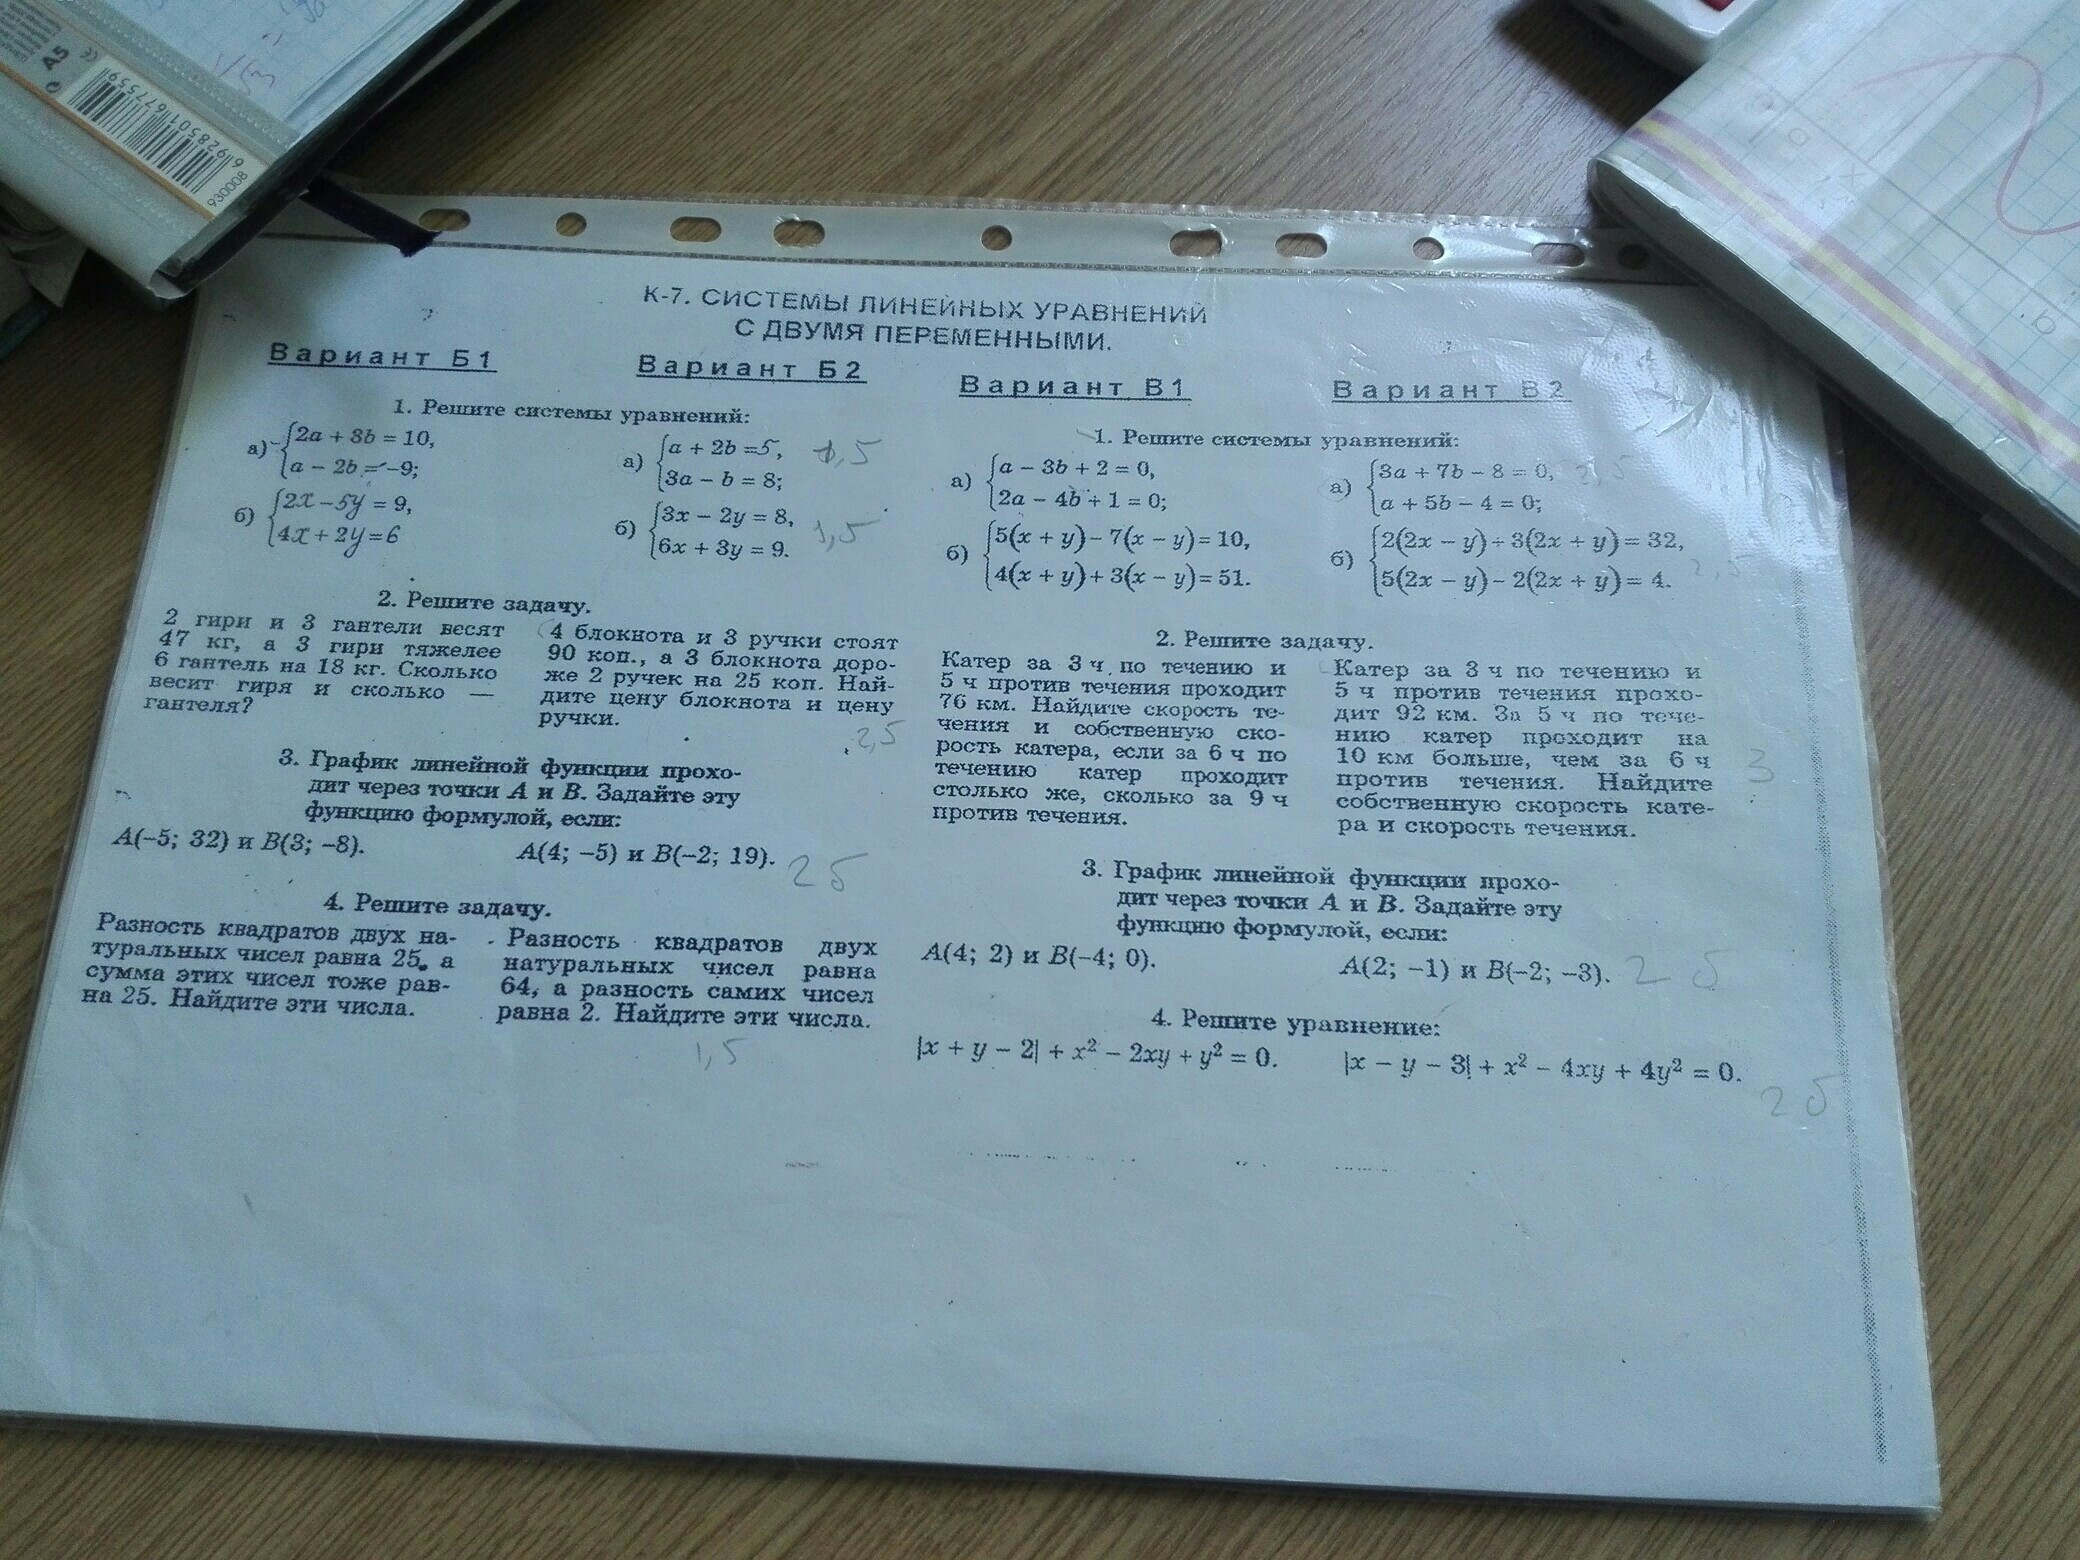 A5
6928501677559
930008
К-7. СИСТЕМЫ ЛИНЕЙНЫХ УРАВНЕНИЙ
С ДВУМЯ ПЕРЕМЕННЫМИ.
Вариант Б1
Вариант Б2
1. Решите системы уравнений:
а) {2a + 3b = 10,
a – 2b = –9;
а) {a + 2b = 5, 1,5
3a – b = 8;
б) {2x – 5y = 9,
4x + 2y = 6
б) {3x – 2y = 8, 1,5
6x + 3y = 9.
2. Решите задачу.
2 гири и 3 гантели весят
47 кг, а 3 гири тяжелее
6 гантель на 18 кг. Сколько
весит гиря и сколько —
гантеля?
4 блокнота и 3 ручки стоят
90 коп., а 3 блокнота доро-
же 2 ручек на 25 коп. Най-
дите цену блокнота и цену
ручки.
2,5
3. График линейной функции прохо-
дит через точки A и B. Задайте эту
функцию формулой, если:
A(–5; 32) и B(3; –8).
A(4; –5) и B(–2; 19). 2 б
4. Решите задачу.
Разность квадратов двух на-
туральных чисел равна 25, а
сумма этих чисел тоже рав-
на 25. Найдите эти числа.
Разность квадратов двух
натуральных чисел равна
64, а разность самих чисел
равна 2. Найдите эти числа.
1,5
Вариант В1
Вариант В2
1. Решите системы уравнений:
а) {a – 3b + 2 = 0,
2a – 4b + 1 = 0;
а) {3a + 7b – 8 = 0, 2,5
a + 5b – 4 = 0;
б) {5(x + y) – 7(x – y) = 10,
4(x + y) + 3(x – y) = 51.
б) {2(2x – y) + 3(2x + y) = 32,
5(2x – y) – 2(2x + y) = 4. 2,5
2. Решите задачу.
Катер за 3 ч по течению и
5 ч против течения проходит
76 км. Найдите скорость те-
чения и собственную ско-
рость катера, если за 6 ч по
течению катер проходит
столько же, сколько за 9 ч
против течения.
Катер за 3 ч по течению и
5 ч против течения прохо-
дит 92 км. За 5 ч по тече-
нию катер проходит на
10 км больше, чем за 6 ч
против течения. Найдите
собственную скорость кате-
ра и скорость течения.
3
3. График линейной функции прохо-
дит через точки A и B. Задайте эту
функцию формулой, если:
A(4; 2) и B(–4; 0).
A(2; –1) и B(–2; –3). 2 б
4. Решите уравнение:
|x + y – 2| + x² – 2xy + y² = 0.
|x – y – 3| + x² – 4xy + 4y² = 0.
2 б